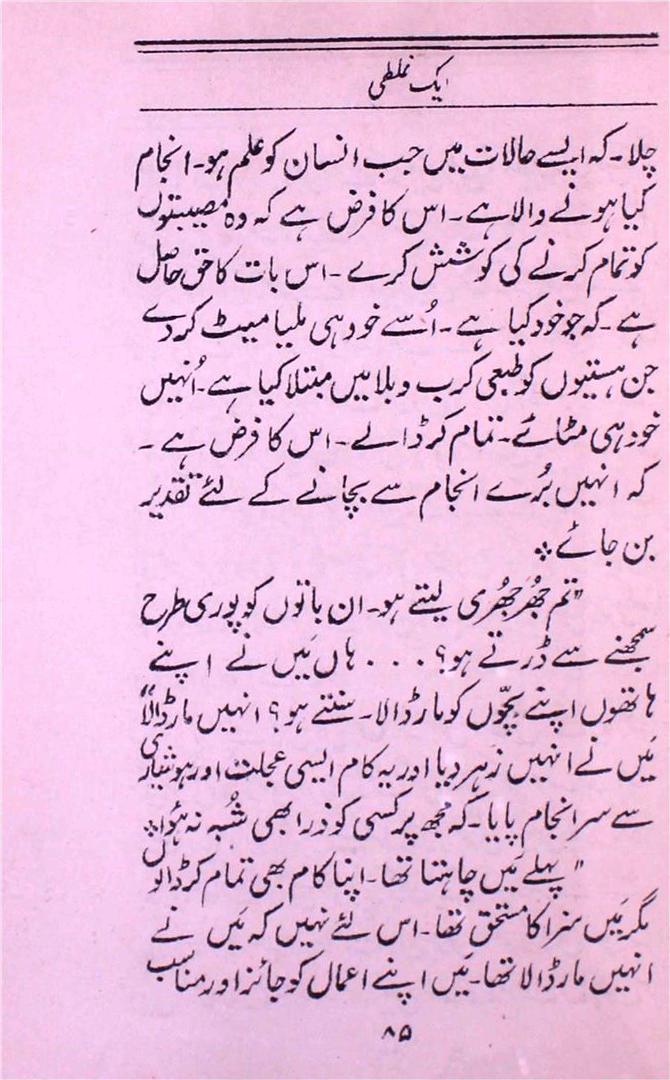 ایک غلطی
چلا۔ کہ ایسے حالات میں جب انسان کو علم ہو۔ انجام
کیا ہونے والا ہے۔ اس کا فرض ہے کہ وہ مصیبتوں
کو تمام کرنے کی کوشش کرے۔ اس بات کا حق حاصل
ہے۔ کہ جو خود کیا ہے۔ اُسے خود ہی ملیا میٹ کر دے
جن ہستیوں کو طبعی کرب و بلا میں مبتلا کیا ہے۔ اُنہیں
خود ہی مٹائے۔ تمام کر ڈالے۔ اس کا فرض ہے۔
کہ انہیں بُرے انجام سے بچانے کے لئے تقدیر
بن جائے ؞
"تم جھُرجھُری لیتے ہو۔ ان باتوں کو پوری طرح
سمجھنے سے ڈرتے ہو؟ . . . ہاں مَیں نے اپنے
ہاتھوں اپنے بچّوں کو مار ڈالا۔ سنتے ہو؟ انہیں مار ڈالا"
مَیں نے انہیں زہر دیا اور یہ کام ایسی عجلت اور ہوشیاری
سے سرانجام پایا۔ کہ مجھ پر کسی کو ذرا بھی شُبہ نہ ہوا ؞
"پہلے مَیں چاہتا تھا۔ اپنا کام بھی تمام کر ڈالوں
مگر مَیں سزا کا مستحق تھا۔ اس لئے نہیں کہ مَیں نے
انہیں مار ڈالا تھا۔ مَیں اپنے اعمال کو جائز اور مناسب
۸۵